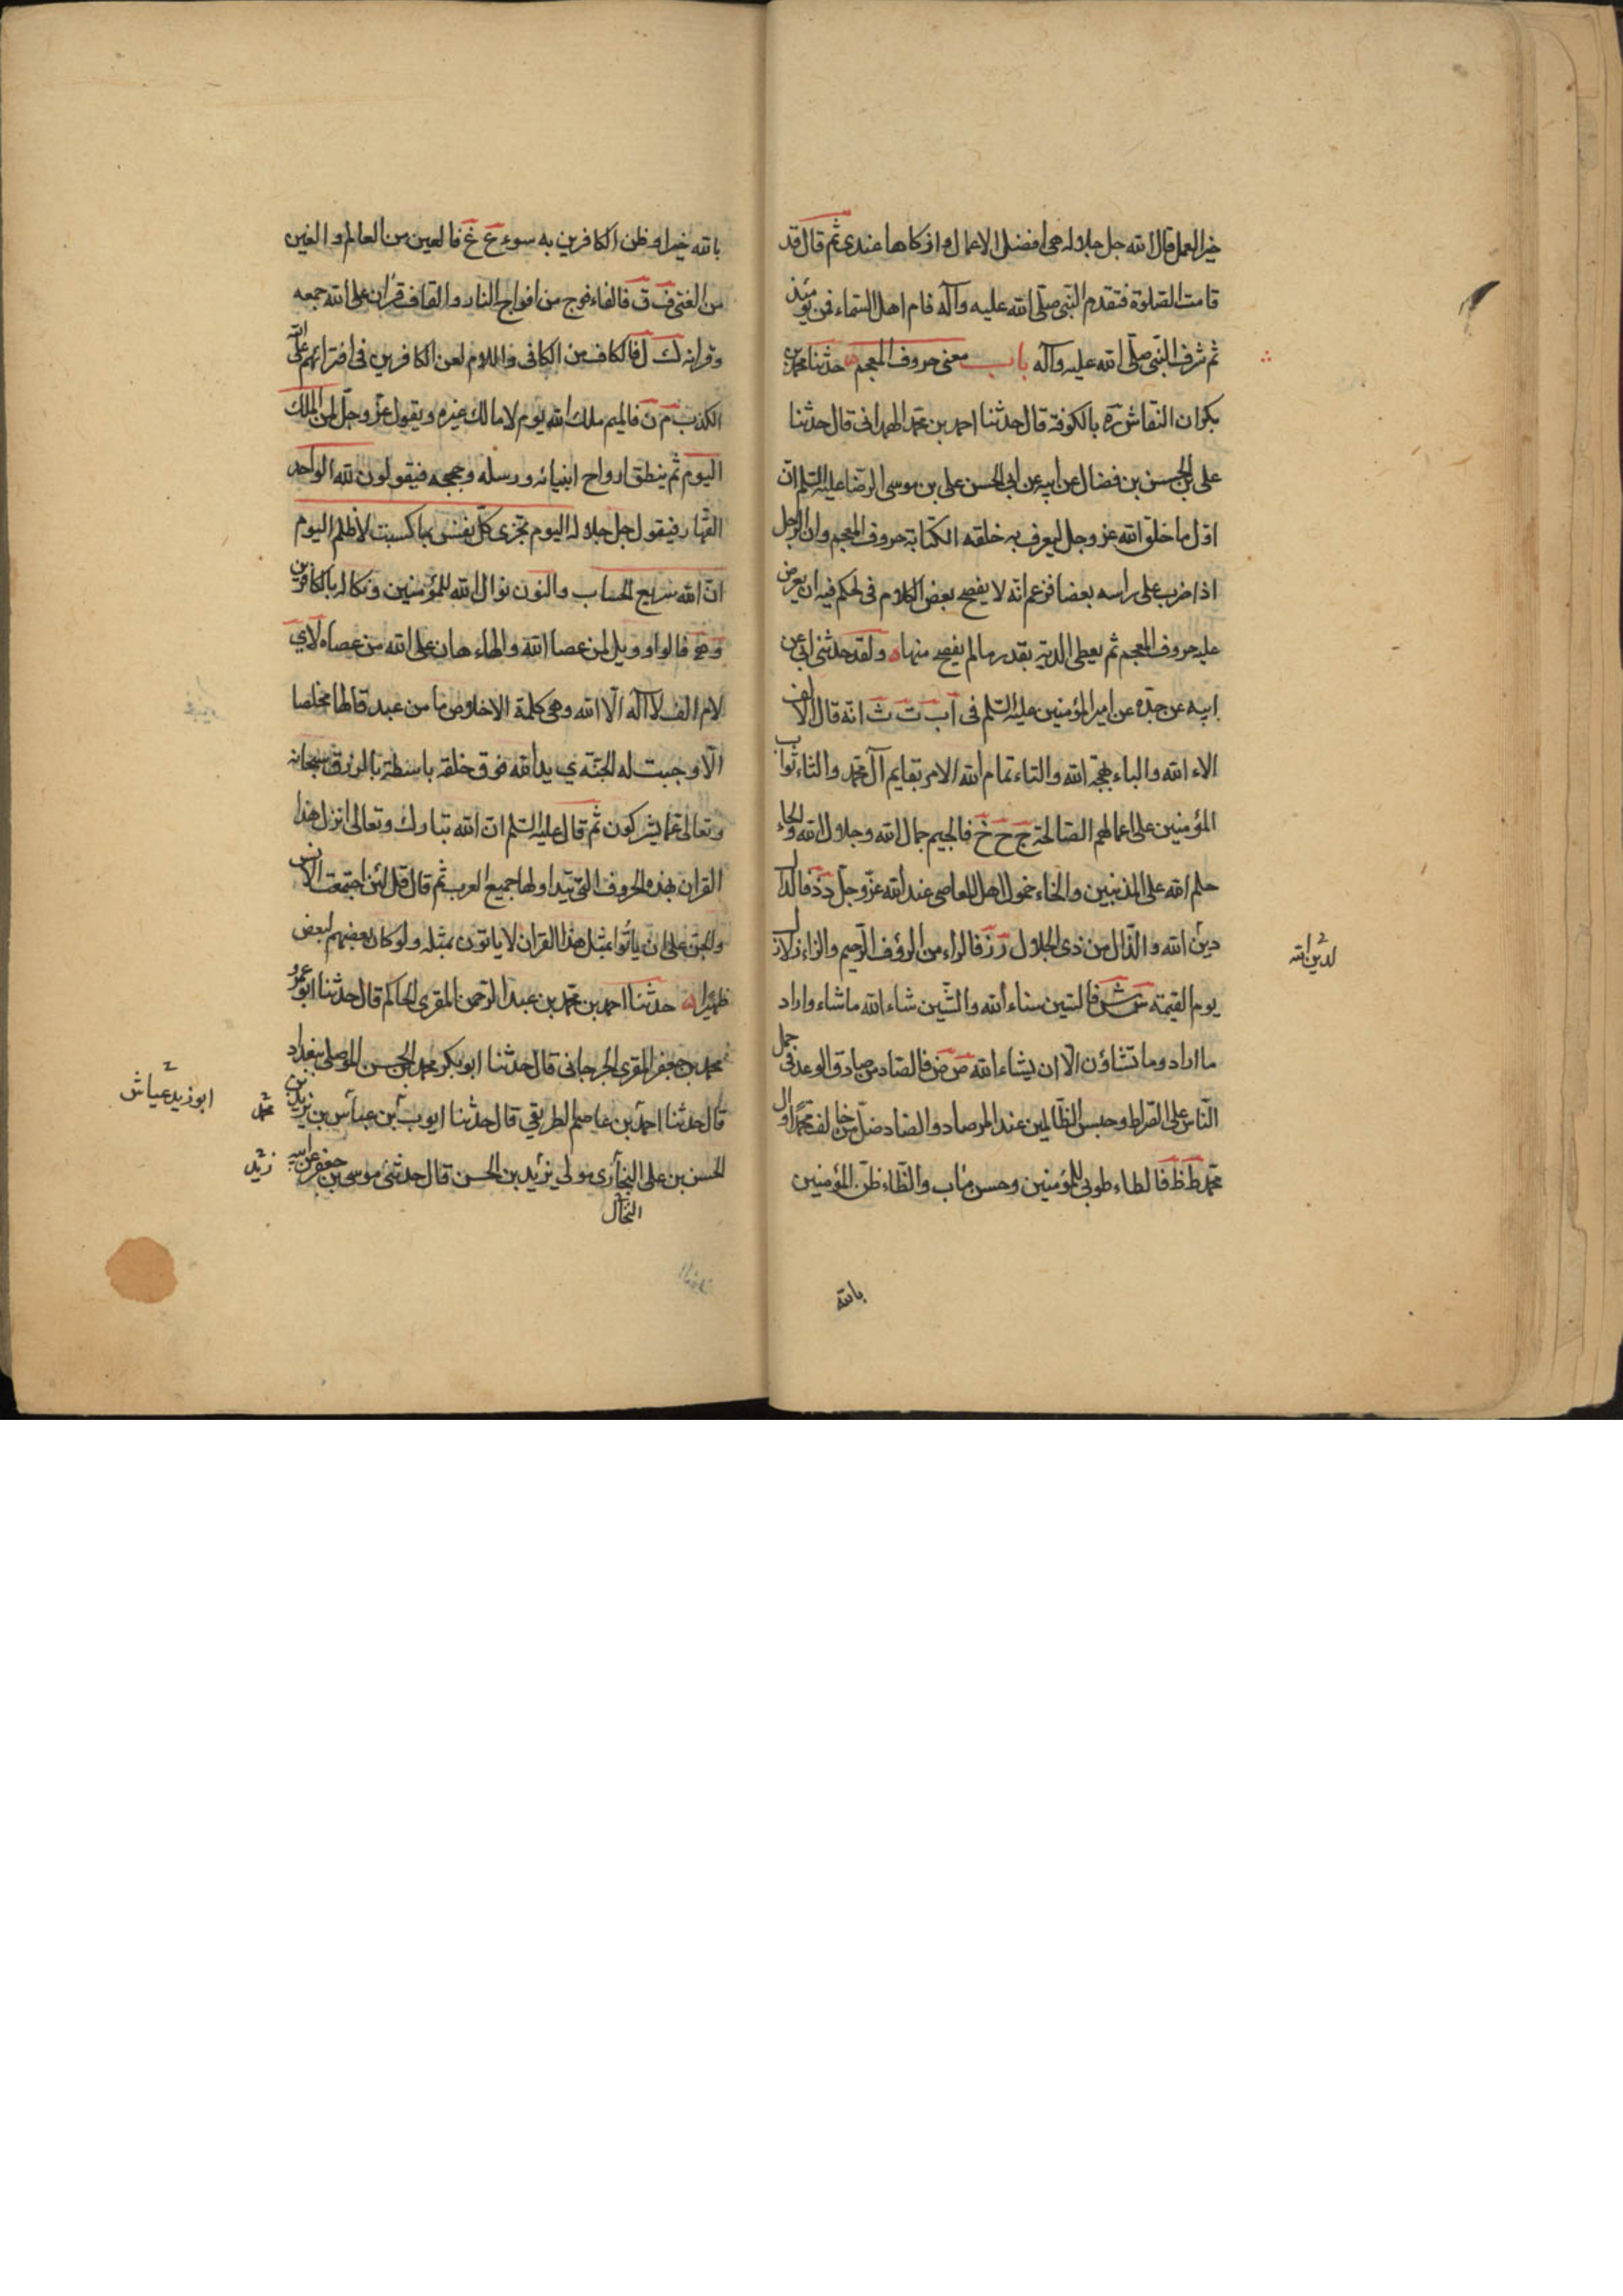 خير العمل قال الله جل جلاله هى افضل الاعمال وازكاها عندى ثم قال قد
قامت الصلوة فتقدم النبى صلى الله عليه وآله فام اهل السماء فمن يومئذ
ثم شرف النبى صلى الله عليه وآله باب معنى حروف المعجم حدثنا محمد بن
بكران النقاش ره بالكوفة قال حدثنا احمد بن محمد الهمدانى قال حدثنا
على بن الحسن بن فضال عن ابيه عن ابى الحسن على بن موسى الرضا عليه السلم ان
اول ما خلق الله عز وجل ليعرف به خلقه الكتابة حروف المعجم وان الرجل
اذا ضرب على راسه بعضا فزعم انه لا يفصح ببعض الكلام فالحكم فيه ان يعرض
عليه حروف المعجم ثم يعطى الدية بقدر ما لم يفصح منها ه ولقد حدثنى ابى عن
ابيه عن جده عن امير المؤمنين عليه السلم فى ا ب ت ث انه قال الالف
الاء الله والباء بهجة الله والتاء تمام الله الامر بقايم آل محمد والثاء ثواب
المؤمنين على اعمالهم الصالحة ج ح خ فالجيم جمال الله وجلال الله والحاء
حلم الله على المذنبين والخاء خمول اهل المعاصى عند الله عز وجل د ذ فالدال
دين الله والذال من ذى الجلال ر ز فالراء من الرؤف الرحيم والزاء زلازل
لدين الله
يوم القيمة س ش فالسين سناء الله والشين شاء الله ما شاء واراد
ما اراد وما تشاؤن الا ان يشاء الله ص ض فالصاد من صادق الوعد فى حمل
الناس على الصراط وحبس الظالمين عند المرصاد والضاد ضل من خالف محمدا وال
محمد ط ظ فالطاء طوبى للمؤمنين وحسن ماب والظاء ظن المؤمنين
بالله
بالله خيرا وظن الكافرين به سوء ع غ فالعين من العالم والغين
من الغنى ف ق فالفاء فوج من افواج النار والقاف قران على الله جمعه
وقرانه ك ل فالكاف من الكافى واللام لعن الكافرين فى افترائهم على الله
الكذب م ن فالميم ملك الله يوم لا مالك غيره ويقول عز وجل لمن الملك
اليوم ثم ينطق ارواح انبيائه ورسله وحججه فيقولون لله الواحد
القهار فيقول جل جلاله اليوم تجزى كل نفس بما كسبت لا ظلم اليوم
ان الله سريع الحساب والنون نوال الله للمؤمنين ونكاله بالكافرين
و ه فالواو ويل لمن عصا الله والهاء هان على الله من عصاه لا ي
لام الف لا اله الا الله وهى كلمة الاخلاص ما من عبد قالها مخلصا
الا وجبت له الجنة ي يد الله فوق خلقه باسطة بالرزق سبحانه
وتعالى عما يشركون ثم قال عليه السلم ان الله تبارك وتعالى انزل هذا
القران بهذه الحروف التى تيداولها جميع العرب ثم قال قل لئن اجتمعت الانس
والجن على ان يأتوا بمثل هذا القران لا ياتون بمثله ولو كان بعضهم لبعض
ظهيرا ه حدثنا احمد بن محمد بن عبد الرحمن المقرى الحاكم قال حدثنا ابو عمرو
محمد بن جعفر المقرى الجرجانى قال حدثنا ابو بكر محمد بن الحسن الموصلى ببغداد
قال حدثنا احمد بن عاصم الطريقي قال حدثنا ايوب بن عباس بن يزيد بن
محمد
ابو زيد عياش
الحسن بن على البخارى مولى يزيد بن الحسن قال حدثنى موسى بن جعفر عن ابيه
زيد
النحال